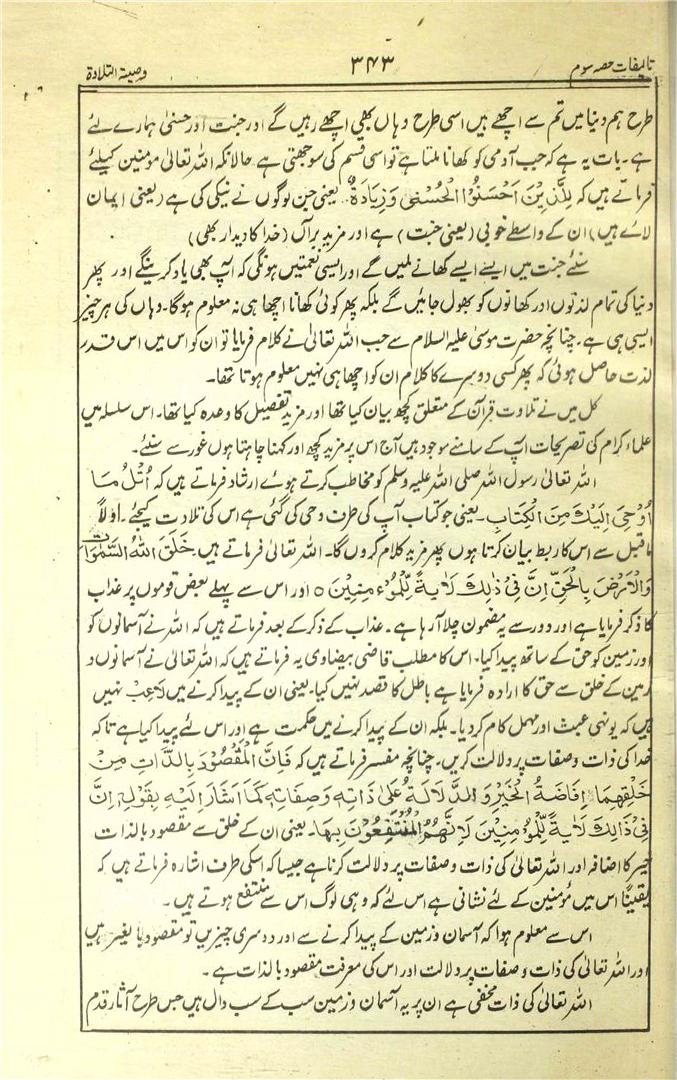 تالیفات حصہ سوم ۳۴۳ وصیۃ التلاوۃ
طرح ہم دنیا میں تم سے اچھے ہیں اسی طرح وہاں بھی اچھے رہیں گے اور جنت اور حسنیٰ ہمارے لئے
ہے۔ بات یہ ہے کہ جب آدمی کو کھانا ملتا ہے تو اسی قسم کی سوجھتی ہے حالانکہ اللہ تعالیٰ مؤمنین کیلئے
فرماتے ہیں کہ لِلَّذِیْنَ اَحْسَنُوا الْحُسْنٰی وَزِیَادَۃٌ۔ یعنی جن لوگوں نے نیکی کی ہے (یعنی ایمان
لائے ہیں) ان کے واسطے خوبی (یعنی جنت) ہے اور مزید برآں (خدا کا دیدار بھی)
سنئے جنت میں ایسے ایسے کھانے ملیں گے اور ایسی نعمتیں ہونگی کہ آپ بھی یاد کرینگے اور پھر
دنیا کی تمام لذتوں اور کھانوں کو بھول جائیں گے بلکہ پھر کوئی کھانا اچھا ہی نہ معلوم ہوگا۔ وہاں کی ہر چیز
ایسی ہی ہے۔ چنانچہ حضرت موسیٰ علیہ السلام سے جب اللہ تعالیٰ نے کلام فرمایا تو ان کو اس میں اس قدر
لذت حاصل ہوئی کہ پھر کسی دوسرے کا کلام ان کو اچھا ہی نہیں معلوم ہوتا تھا۔
کل میں نے تلاوت قرآن کے متعلق کچھ بیان کیا تھا اور مزید تفصیل کا وعدہ کیا تھا۔ اس سلسلہ میں
علماء کرام کی تصریحات آپ کے سامنے موجود ہیں آج اس پر مزید کچھ اور کہنا چاہتا ہوں غور سے سنئے۔
اللہ تعالیٰ رسول اللہ صلی اللہ علیہ وسلم کو مخاطب کرتے ہوئے ارشاد فرماتے ہیں کہ اُتْلُ مَا
اُوْحِیَ اِلَیْكَ مِنَ الْكِتَابِ۔ یعنی جو کتاب آپ کی طرف وحی کی گئی ہے اس کی تلاوت کیجئے۔ اولاً
ماقبل سے اس کا ربط بیان کرتا ہوں پھر مزید کلام کروں گا۔ اللہ تعالیٰ فرماتے ہیں۔ خَلَقَ اللّٰہُ السَّمٰوَاتِ
وَالْاَرْضَ بِالْحَقِّ اِنَّ فِیْ ذٰلِكَ لَاٰیَۃً لِّلْمُوْءمِنِیْنَ ۵ اور اس سے پہلے بعض قوموں پر عذاب
کا ذکر فرمایا ہے اور دور سے یہ مضمون چلا آرہا ہے۔ عذاب کے ذکر کے بعد فرماتے ہیں کہ اللہ نے آسمانوں کو
اور زمین کو حق کے ساتھ پیدا کیا۔ اس کا مطلب قاضی بیضاوی یہ فرماتے ہیں کہ اللہ تعالیٰ نے آسمانوں و
زمین کے خلق سے حق کا ارادہ فرمایا ہے باطل کا قصد نہیں کیا۔ یعنی ان کے پیدا کرنے میں لاعب نہیں
ہیں کہ یونہی عبث اور مہمل کام کر دیا۔ بلکہ ان کے پیدا کرنے میں حکمت ہے اور اس لئے پیدا کیا ہے تاکہ
خدا کی ذات وصفات پر دلالت کریں۔ چنانچہ مفسر فرماتے ہیں کہ فَاِنَّ الْمَقْصُوْدَ بِالذَّاتِ مِنْ
خَلْقِهِمَا اِفَاضَۃُ الْخَیْرِ وَالدَّلَالَۃُ عَلیٰ ذَاتِہٖ وَصِفَاتِہٖ كَمَا اَشَارَ اِلَیْهِ بِقَوْلِہٖ اِنَّ
فِیْ ذَالِكَ لَاٰیَۃً لِّلْمُوْءمِنِیْنَ لِاَنَّھُمُ الْمُنْتَفِعُوْنَ بِھَا۔ یعنی ان کے خلق سے مقصود بالذات
خیر کا اضافہ اور اللہ تعالیٰ کی ذات وصفات پر دلالت کرنا ہے جیسا کہ اسکی طرف اشارہ فرماتے ہیں کہ
یقیناً اس میں مؤمنین کے لئے نشانی ہے اس لئے کہ وہی لوگ اس سے منتفع ہوتے ہیں۔
اس سے معلوم ہوا کہ آسمان وزمین کے پیدا کرنے سے اور دوسری چیزیں تو مقصود بالغیر ہیں
اور اللہ تعالیٰ کی ذات وصفات پر دلالت اور اس کی معرفت مقصود بالذات ہے۔
اللہ تعالیٰ کی ذات مخفی ہے ان پر یہ آسمان وزمین سب کے سب دال ہیں جس طرح آثار قدم